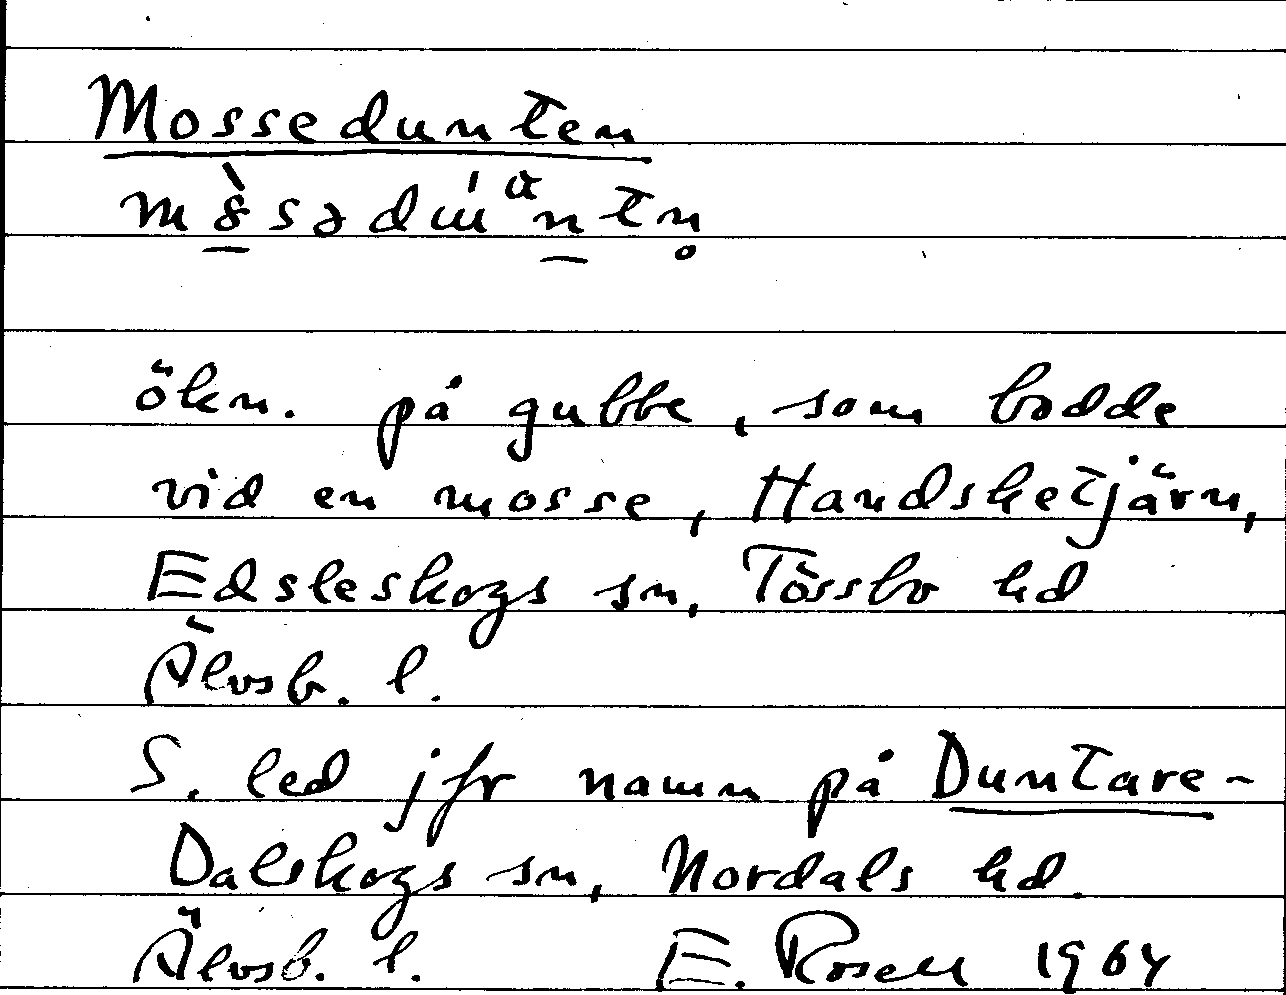 Mossedunten
ökn. på gubbe, som bodde
vid en mosse, Handsketjärn,
Edsleskogs sn, Tössbo hd
Älvsb. l.
S. led jfr namn på Duntare-
Dalskogs sn, Nordals hd.
Älvsb. l. E. Rosell 1964